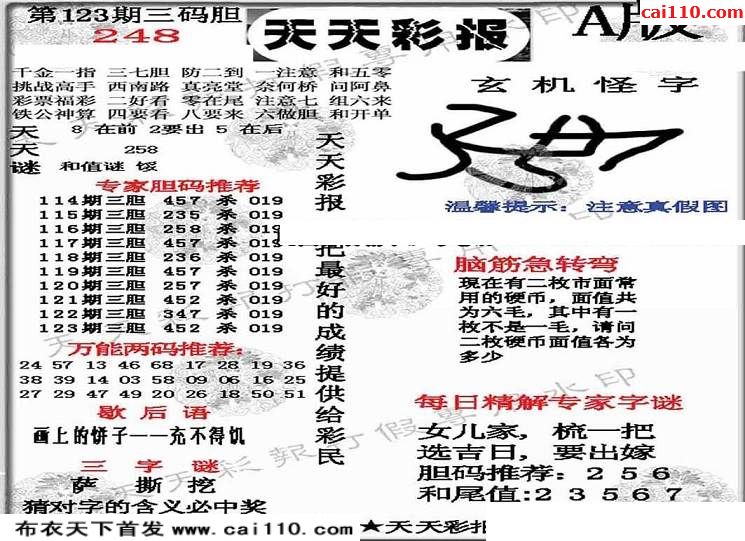 第123期三码胆
248
天天彩报
A版
cai110.com
千金一指 三七胆 防二到 一注意 和五零
挑战高手 西南路 真亮堂 奈何桥 问阿鼻
彩票福彩 二好看 零在尾 注意七 组六来
铁公神算 四要看 八要来 六做胆 和开单
天天谜
8 在前 2要出 5 在后
258
和值谜 馁
专家胆码推荐
114期三胆 457 杀 019
115期三胆 235 杀 019
116期三胆 258 杀 019
117期三胆 457 杀 019
118期三胆 236 杀 019
119期三胆 457 杀 019
120期三胆 257 杀 019
121期三胆 452 杀 019
122期三胆 347 杀 019
123期三胆 452 杀 019
万能两码推荐:
24 57 13 46 68 17 28 19 36
38 39 14 03 58 09 06 16 25
27 29 47 49 20 26 18 50 51
歇后语
画上的饼子——充不得饥
三字谜
萨 撕 挖
猜对字的含义必中奖
天天彩报
把最好的成绩提供给彩民
玄机怪字
温馨提示: 注意真假图
脑筋急转弯
现在有二枚市面常
用的硬币，面值共
为六毛，其中有一
枚不是一毛，请问
二枚硬币面值各为
多少
每日精解专家字谜
女儿家，梳一把
选吉日，要出嫁
胆码推荐: 2 5 6
和尾值: 2 3 5 6 7
布衣天下首发 www.cai110.com
★天天彩报